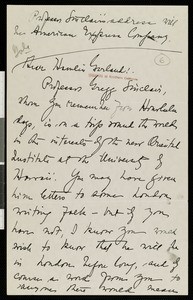 Professor Sinclair's address will
be American Express Company.
Dear Hamlin Garland:
Professor Gregg Sinclair,
whom you remember from Honolulu
days, is on a trip around the world
in the interests of the new Oriental
Institute at the University of
Hawaii. You may have given
him letters to some London
writing folk — but if you
have not, I know you
wish to know that he will be
in London before long, and of
course a word from you to
anyone there would mean